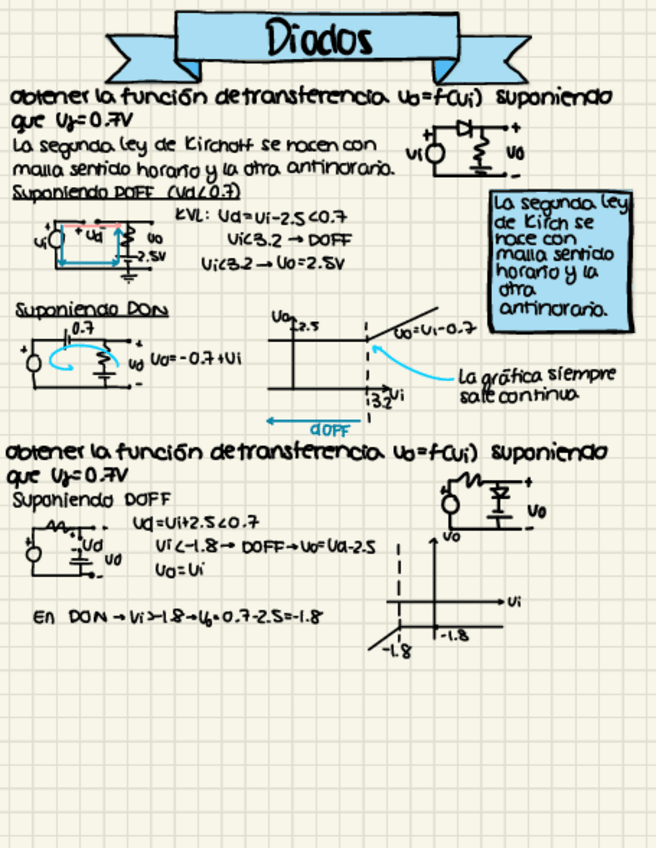 Diodos
obtener la función de transferencia vo=f(vi) suponiendo
que Vγ=0.7V
La segunda ley de Kirchoff se hacen con
malla sentido horario y la otra antihorario.
Vi
+
+
-
Vo
Suponiendo DOFF (Vd<0.7)
KVL: Vd=Vi-2.5<0.7
Vi<3.2 → DOFF
Vi<3.2 → Vo=2.5V
+
Vi
+ Vd -
Vo
2.5V
La segunda ley
de Kirch se
hace con
malla sentido
horario y la
otra
antihorario.
Suponiendo DON
0.7
+
+
-
Vo=-0.7+Vi
Vo
2.5
Vo=Vi-0.7
3.2
Vi
dOFF
La gráfica siempre
sale continua
obtener la función de transferencia vo=f(vi) suponiendo
que Vγ=0.7V
Suponiendo DOFF
+
+
-
Vo
Vd=Vi+2.5<0.7
Vi<-1.8 → DOFF → Vo=Vd-2.5
Vo=Vi
+
Vd
-
En DON → Vi>-1.8 → Vo=0.7-2.5=-1.8
Vo
Vi
-1.8
-1.8